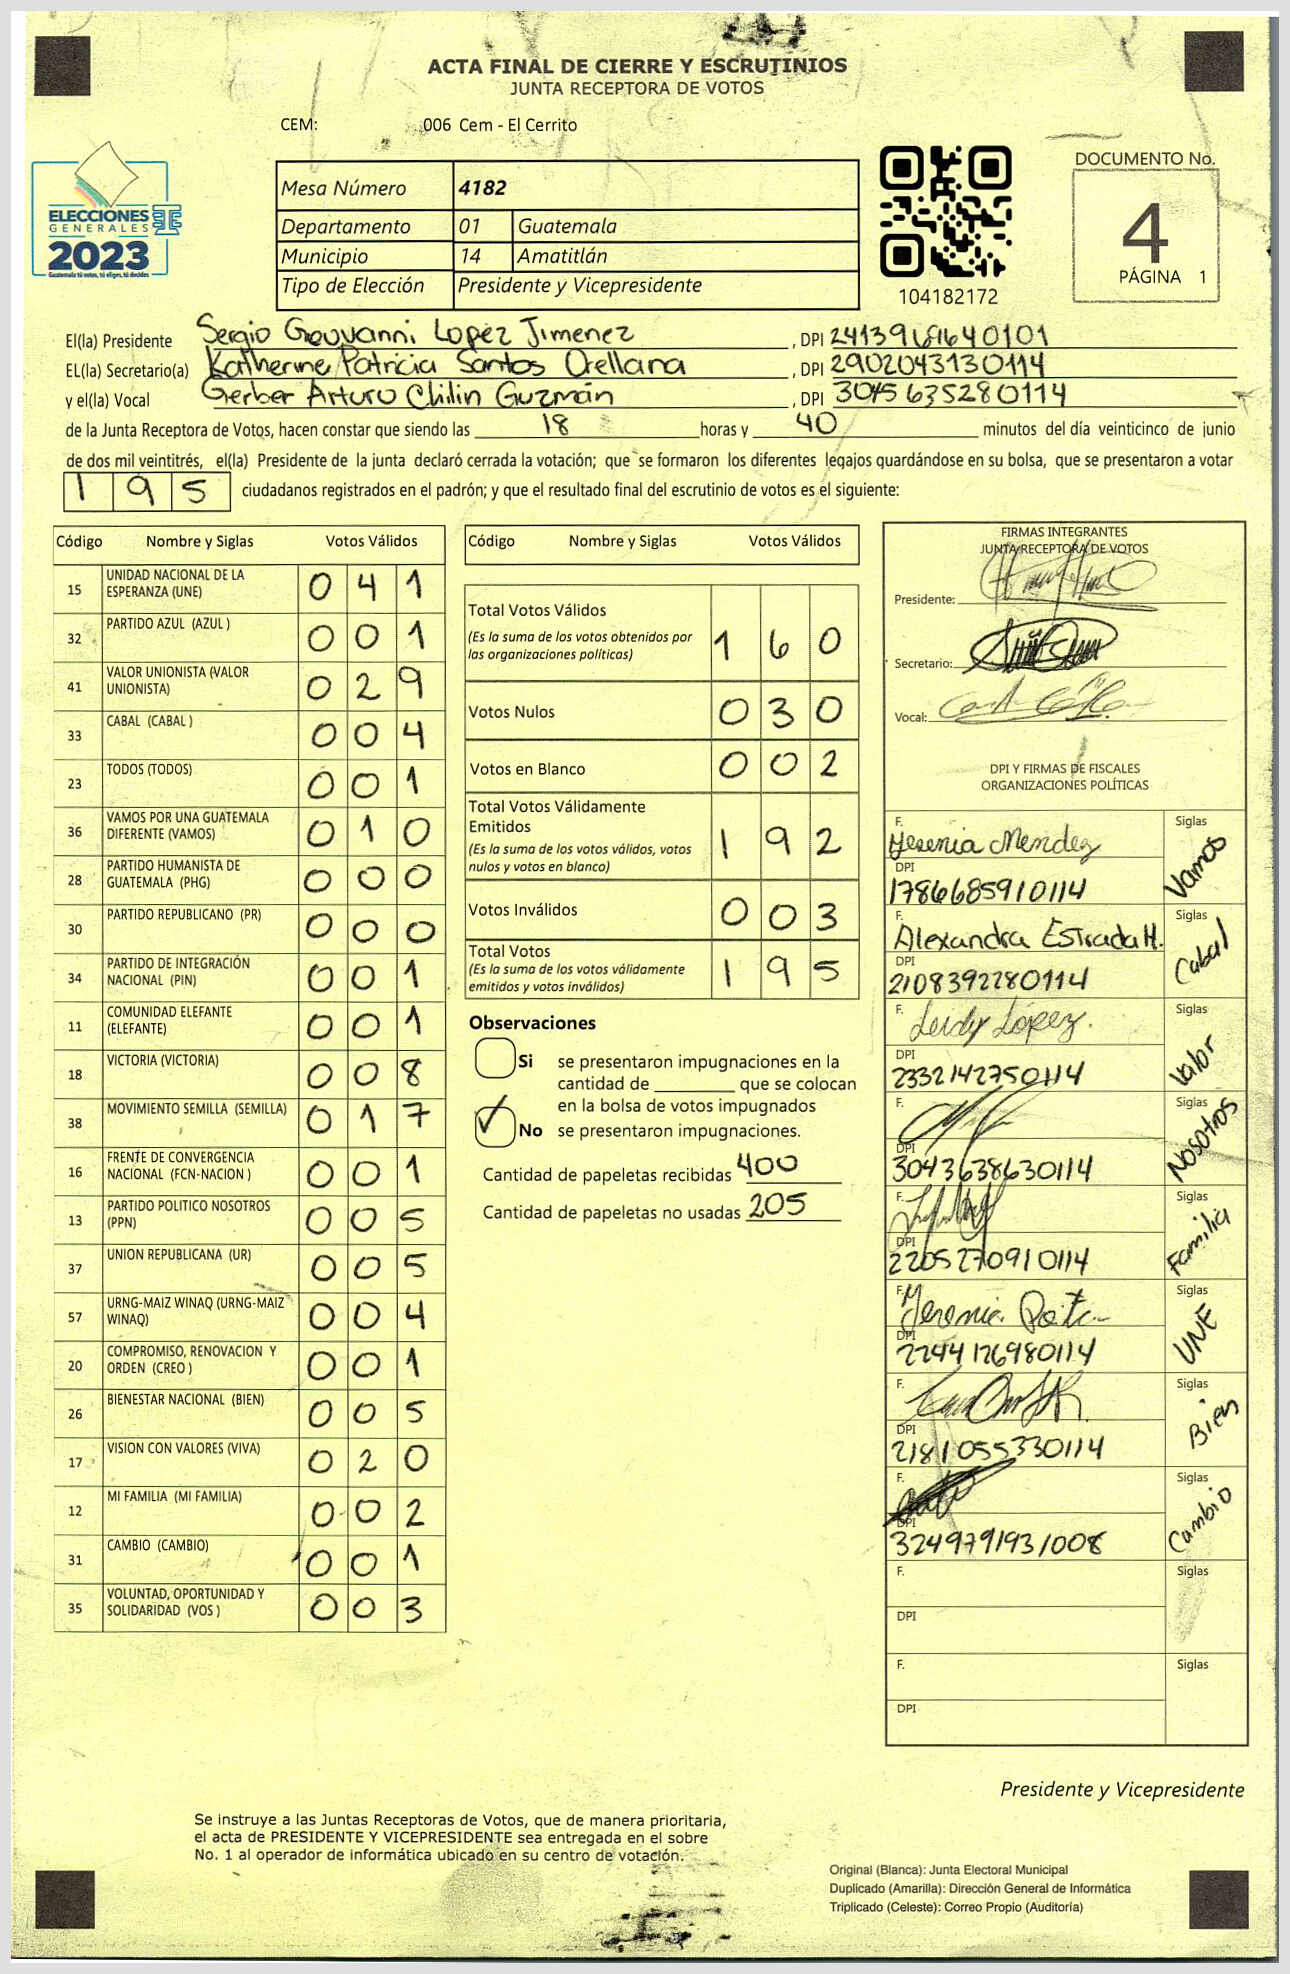 ACTA FINAL DE CIERRE Y ESCRUTINIOS
JUNTA RECEPTORA DE VOTOS
CEM: 006 Cem - El Cerrito
ELECCIONES
GENERALES
2023
Guatemala tú votas, tú eliges, tú decides
Mesa Número 4182
Departamento 01 Guatemala
Municipio 14 Amatitlán
Tipo de Elección Presidente y Vicepresidente
104182172
DOCUMENTO No.
4
PÁGINA 1
El(la) Presidente Sergio Geovanni Lopez Jimenez, DPI 2413968640101
EL(la) Secretario(a) Katherine Patricia Santos Orellana, DPI 2902043130114
y el(la) Vocal Gerber Arturo Chilin Guzmán, DPI 3045635280114
de la Junta Receptora de Votos, hacen constar que siendo las 18 horas y 40 minutos del día veinticinco de junio
de dos mil veintitrés, el(la) Presidente de la junta declaró cerrada la votación; que se formaron los diferentes legajos guardándose en su bolsa, que se presentaron a votar
195 ciudadanos registrados en el padrón; y que el resultado final del escrutinio de votos es el siguiente:
Código Nombre y Siglas Votos Válidos
15 UNIDAD NACIONAL DE LA ESPERANZA (UNE) 0 4 1
32 PARTIDO AZUL (AZUL ) 0 0 1
41 VALOR UNIONISTA (VALOR UNIONISTA) 0 2 9
33 CABAL (CABAL ) 0 0 4
23 TODOS (TODOS) 0 0 1
36 VAMOS POR UNA GUATEMALA DIFERENTE (VAMOS) 0 1 0
28 PARTIDO HUMANISTA DE GUATEMALA (PHG) 0 0 0
30 PARTIDO REPUBLICANO (PR) 0 0 0
34 PARTIDO DE INTEGRACIÓN NACIONAL (PIN) 0 0 1
11 COMUNIDAD ELEFANTE (ELEFANTE) 0 0 1
18 VICTORIA (VICTORIA) 0 0 8
38 MOVIMIENTO SEMILLA (SEMILLA) 0 1 7
16 FRENTE DE CONVERGENCIA NACIONAL (FCN-NACION ) 0 0 1
13 PARTIDO POLITICO NOSOTROS (PPN) 0 0 5
37 UNION REPUBLICANA (UR) 0 0 5
57 URNG-MAIZ WINAQ (URNG-MAIZ WINAQ) 0 0 4
20 COMPROMISO, RENOVACION Y ORDEN (CREO ) 0 0 1
26 BIENESTAR NACIONAL (BIEN) 0 0 5
17 VISION CON VALORES (VIVA) 0 2 0
12 MI FAMILIA (MI FAMILIA) 0 0 2
31 CAMBIO (CAMBIO) 0 0 1
35 VOLUNTAD, OPORTUNIDAD Y SOLIDARIDAD (VOS ) 0 0 3
Código Nombre y Siglas Votos Válidos
Total Votos Válidos
(Es la suma de los votos obtenidos por
las organizaciones políticas) 1 6 0
Votos Nulos 0 3 0
Votos en Blanco 0 0 2
Total Votos Válidamente
Emitidos
(Es la suma de los votos válidos, votos
nulos y votos en blanco) 1 9 2
Votos Inválidos 0 0 3
Total Votos
(Es la suma de los votos válidamente
emitidos y votos inválidos) 1 9 5
Observaciones
Si se presentaron impugnaciones en la
cantidad de ________ que se colocan
en la bolsa de votos impugnados
✓ No se presentaron impugnaciones.
Cantidad de papeletas recibidas 400
Cantidad de papeletas no usadas 205
FIRMAS INTEGRANTES
JUNTA RECEPTORA DE VOTOS
Presidente:
Secretario:
Vocal:
DPI Y FIRMAS DE FISCALES
ORGANIZACIONES POLÍTICAS
F. Yesenia Mendez Siglas Vamos
DPI 1786685910114
F. Alexandra Estrada H. Siglas Cabal
DPI 2108392280114
F. Leidy López. Siglas Valor
DPI 2332142750114
F. Siglas Nosotros
DPI 3043638630114
F. Siglas Familia
DPI 2205270910114
F. Siglas UNE
DPI 2244126980114
F. Siglas Bien
DPI 2181055330114
F. Siglas Cambio
DPI 3249791931008
F. Siglas
DPI
F. Siglas
DPI
Presidente y Vicepresidente
Se instruye a las Juntas Receptoras de Votos, que de manera prioritaria,
el acta de PRESIDENTE Y VICEPRESIDENTE sea entregada en el sobre
No. 1 al operador de informática ubicado en su centro de votación.
Original (Blanca): Junta Electoral Municipal
Duplicado (Amarilla): Dirección General de Informática
Triplicado (Celeste): Correo Propio (Auditoría)